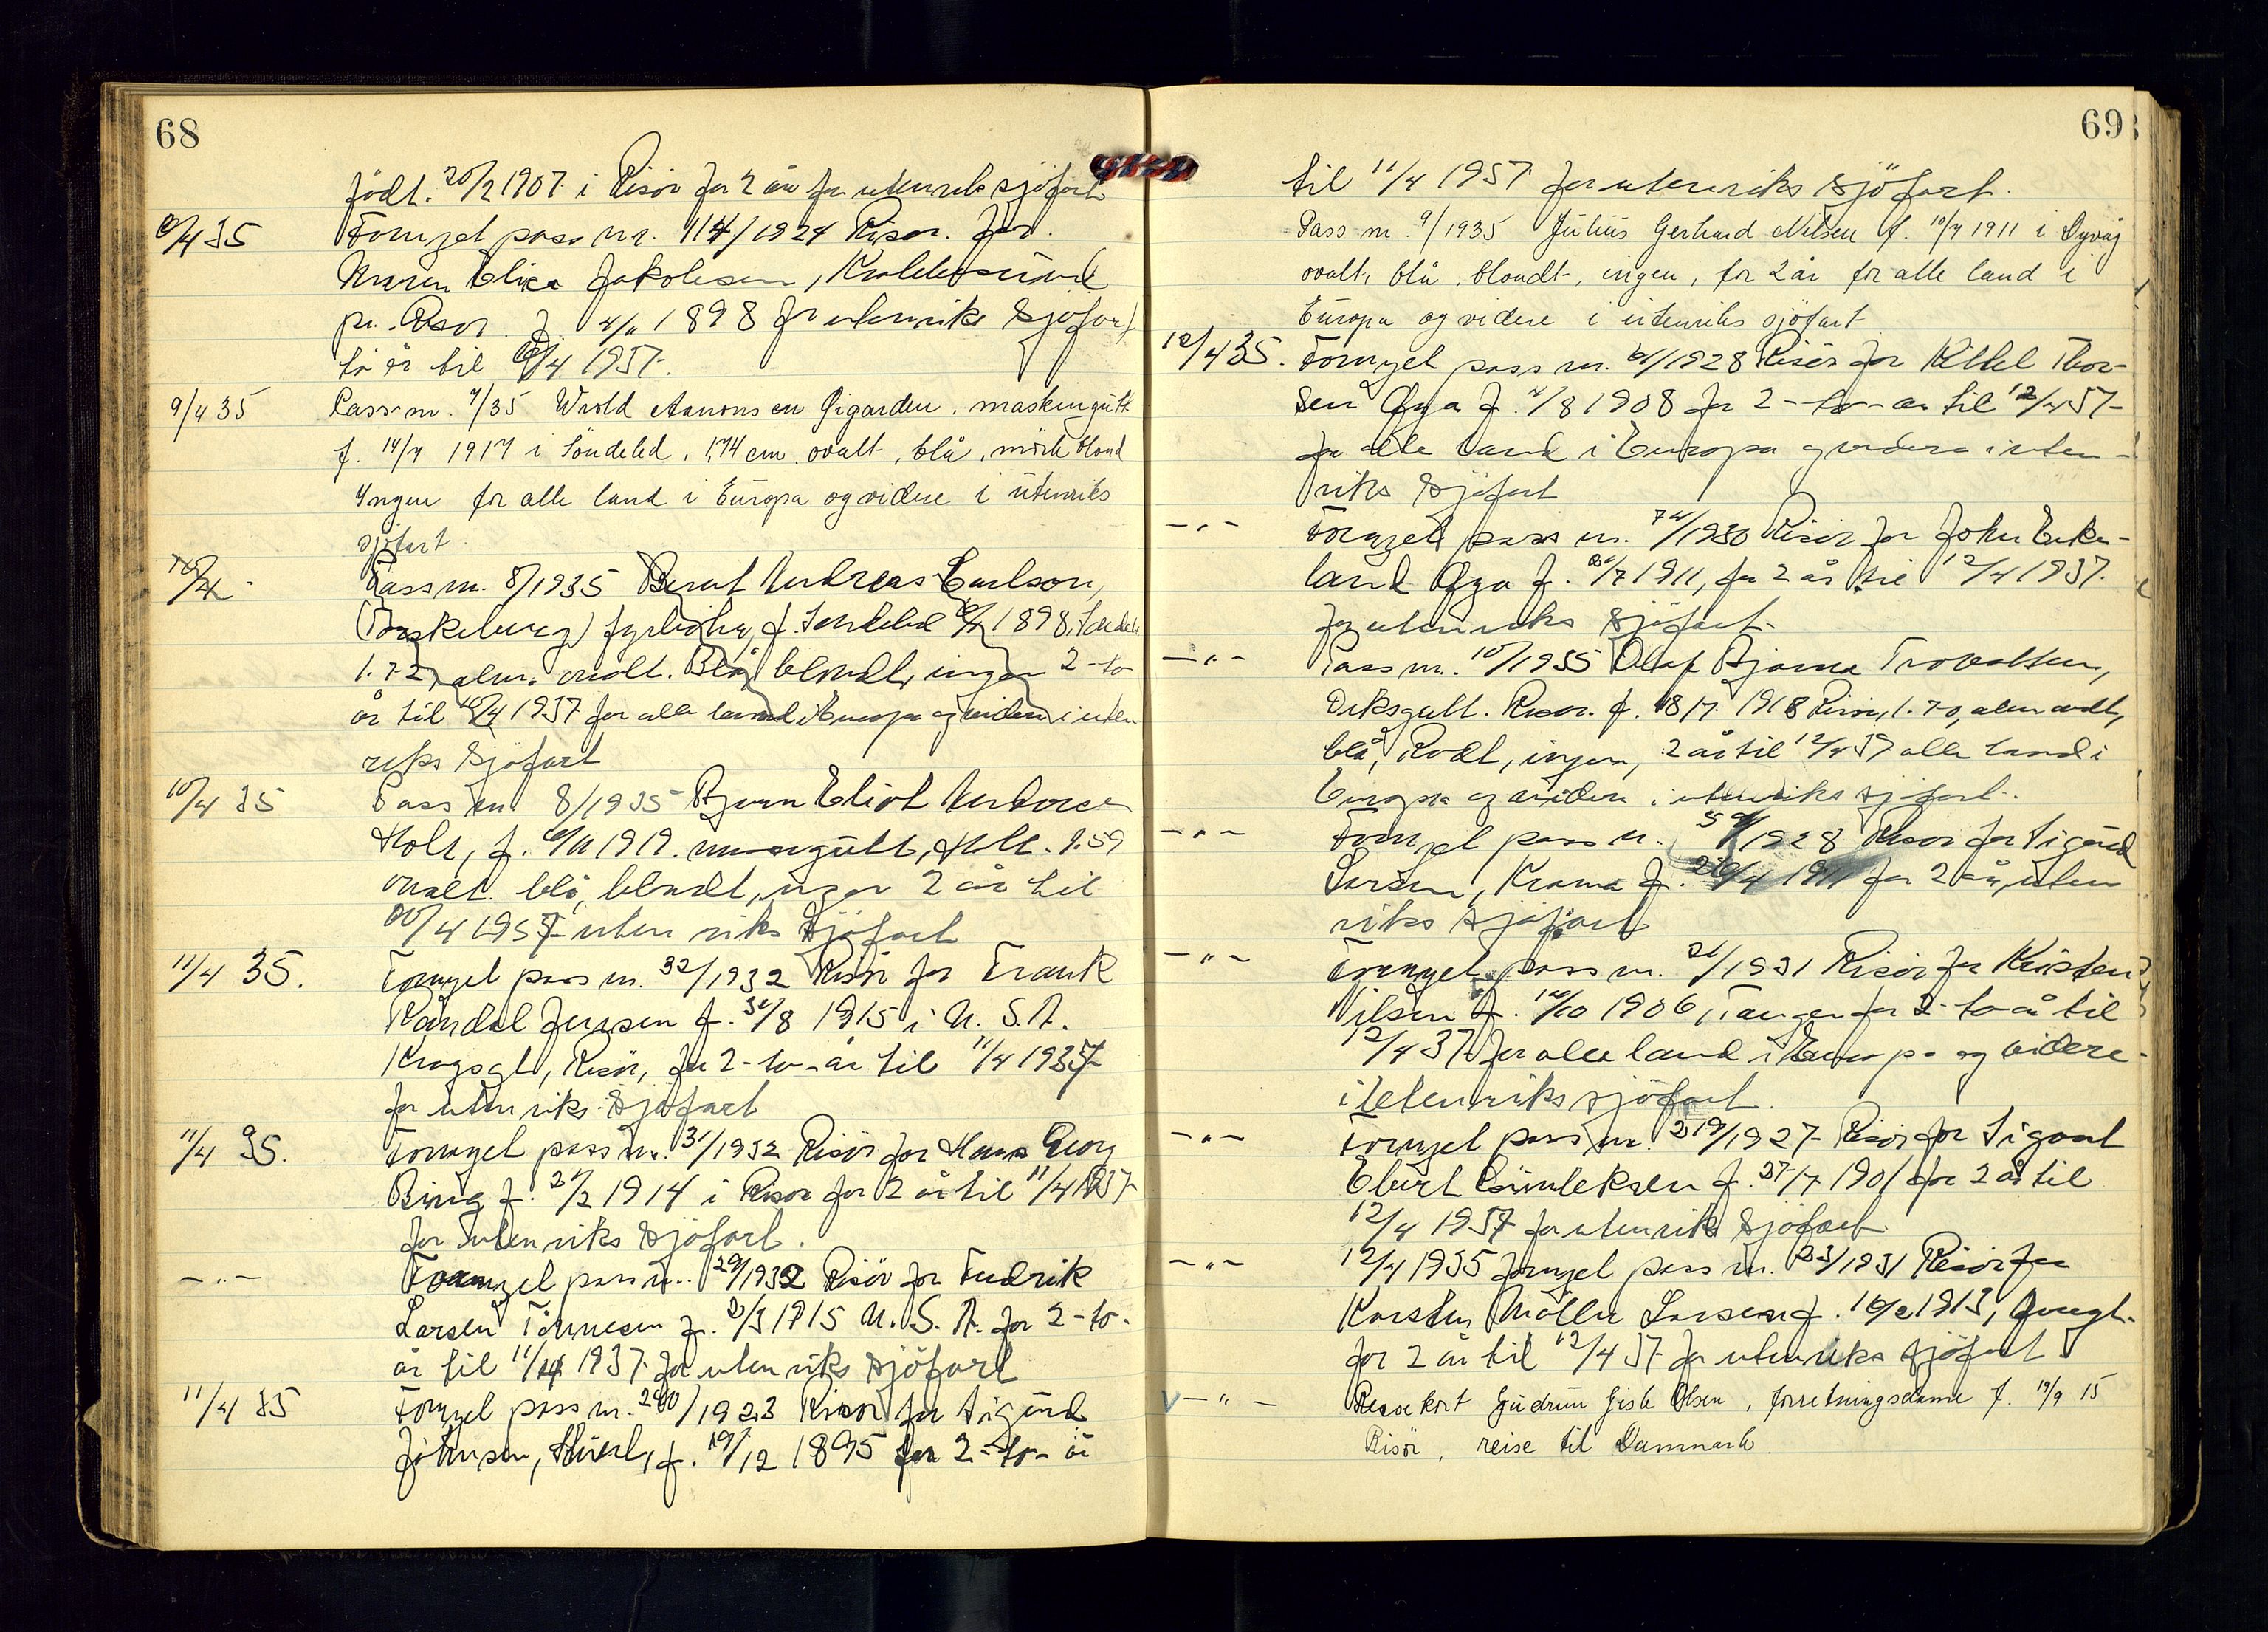 68
födt. 20/2 1907 i Risör for 2 år for utenriks sjöfart
8/4 35 Fornyet pass nr. 114/1924 Risör. for.
Jakobsen,
pr. Risör f. 4/11 1898 for utenriks sjöfart
to år til 8/4 1937.
9/4 35 Pass nr. 7/35 Aanonsen Gigarden. maskingutt
f. 14/4 1917 i Söndeled. 1,74 cm. ovalt, blå, mörk blond
Ingen for alle land i Europa og videre i utenriks
sjöfart.
10/4 Pass nr. 8/1935 Bernt Andreas Carlson,
fyrböter, f. Söndeled 1898,
1.72, alm. ovalt. Blå, blondt, ingen 2-to
år til 10/4 1937 for alle land i Europa og videre i uten
riks sjöfart
10/4 35 Pass nr. 8/1935 Bjarn Eliot
Holt, f. 6/11 1919. Holt. 1.59
ovalt. blå, blondt, ingen 2 år til
10/4 1937 uten riks sjöfart
11/4 35. Fornyet pass nr. 32/1932 Risör for Frank
Randal Jensen f. 31/8 1915 i U. S. A.
Kragsgt, Risör, for 2-to-år til 11/4 1937
for uten riks sjöfart
11/4 35. Fornyet pass nr. 31/1932 Risör for Hans Georg
Bing f. 21/2 1914 i Risör for 2 år til 11/4 1937
for uten riks sjöfart.
-„- Fornyet pass nr. 29/1932 Risör for Fredrik
Larsen Tönnesen f. 1915 U. S. A. for 2-to-
år til 11/4 1937 for uten riks sjöfart
11/4 35 Fornyet pass nr. 240/1923 Risör for Sigurd
Johnsen, f. 19/12 1895 for 2-to-år
69
til 11/4 1937 for utenriks sjöfart.
Pass nr. 9/1935 Julius Gerhard Nilsen f. 10/4 1911 i Dyvåg
ovalt, blå, blondt, ingen, for 2 år for alle land i
Europa og videre i utenriks sjöfart
12/4 35. Fornyet pass nr. 61/1928 Risör for Kittel Thor-
sen Öya f. 4/8 1908 for 2-to-år til 12/4 37
for alle land i Europa og videre i uten-
riks sjöfart
-„- Fornyet pass nr. 74/1930 Risör for John Enke-
land Öya f. 1911, for 2 år til 12/4 1937.
for uten riks sjöfart.
-„- Pass nr. 10/1935 Olaf Bjarne
Deksgutt. Risör. f. 18/7 1918 Risör, 1.70, alm ovalt,
blå, Rödt, ingen, 2 år til 12/4 37 alle land i
Europa og videre i utenriks sjöfart.
-„- Fornyet pass nr. 1928 Risör for Sigurd
Larsen, f. 4 1911 for 2 år, uten
riks sjöfart
-„- Fornyet pass nr. 21/1931 Risör for Kristen
Nilsen f. 14/10 1906, Tangen for 2-to år til
12/4 37 for alle land i Europa og videre-
i Utenriks sjöfart.
-„- Fornyet pass nr. 219/1927 Risör for Sigvart
f. 27/7 1901 for 2 år til
12/4 1937 for utenriks sjöfart
-„- 12/4 1935 fornyet pass nr. 23/1931 Risör for
Karsten Möller Larsen f. 16/2 1913,
for 2 år til 12/4 37 for utenriks sjöfart
-„- Reisekort Gudrun Olsen, forretningsdame f. 19/9 15
Risör, reise til Danmark.